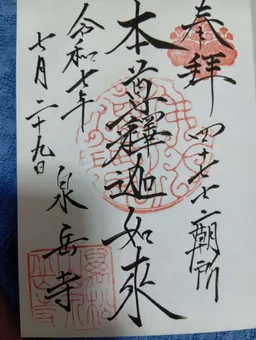 奉拝
四十七士廟所
本尊釋迦如來
令和七年
七月二十九日
泉岳寺